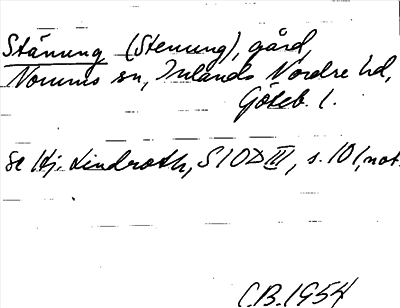 Stänung (Stenung), gård,
Norums sn, Inlands Nordre hd,
Göteb. l.
Se Hj. Lindroth, SIOD III, s. 101, not.
C.B. 1954